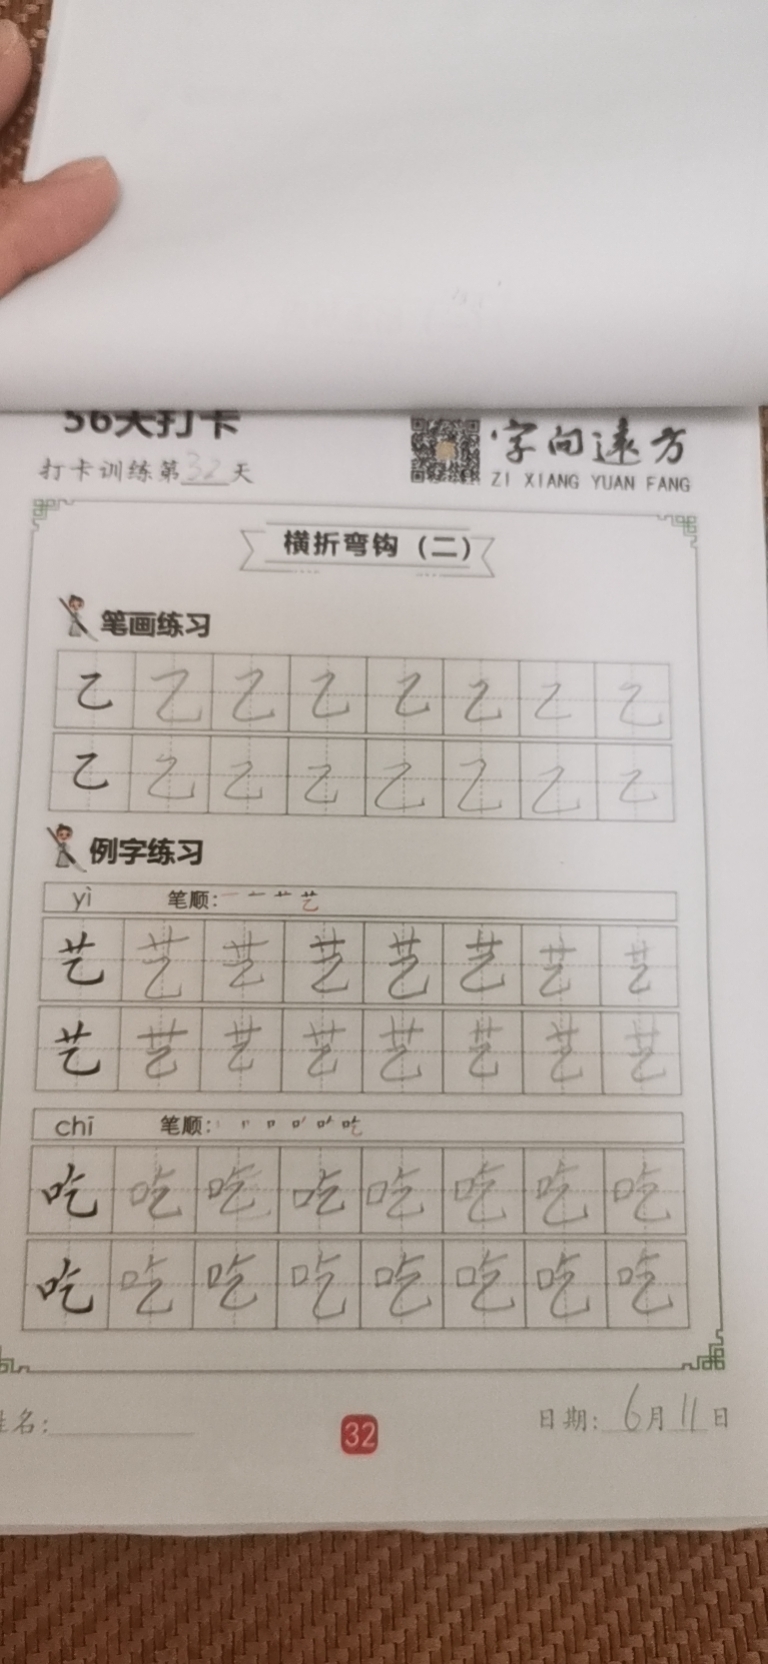 56天打卡
打卡训练第32天
字向远方
ZI XIANG YUAN FANG
横折弯钩（二）
笔画练习
乙 乙 乙 乙 乙 乙 乙 乙
乙 乙 乙 乙 乙 乙 乙 乙
例字练习
yì 笔顺: 一 艹 艺
艺 艺 艺 艺 艺 艺 艺 艺
艺 艺 艺 艺 艺 艺 艺 艺
chī 笔顺: 丨 口 吃
吃 吃 吃 吃 吃 吃 吃 吃
吃 吃 吃 吃 吃 吃 吃 吃
姓名:
日期: 6月11日
32